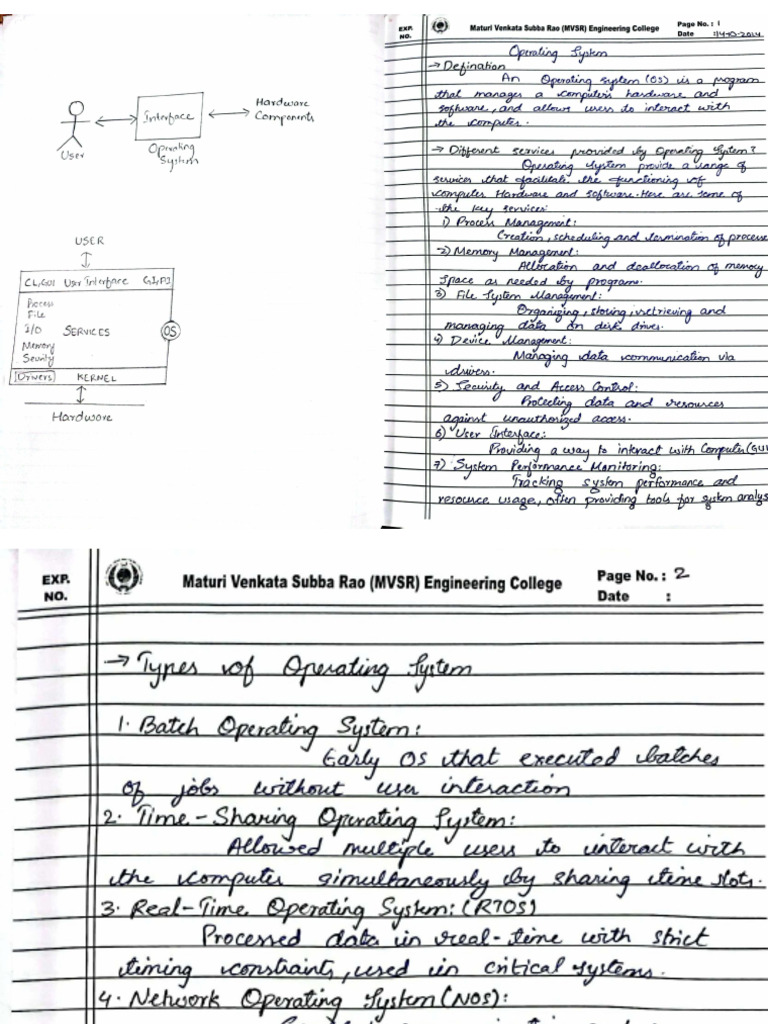 Interface
Hardware
Components
User
Operating
System
USER
CLI,GUI User Interface
Process
File
I/O SERVICES OS
Memory
Security
Drivers KERNEL
Hardware
EXP.
NO.
Maturi Venkata Subba Rao (MVSR) Engineering College
Page No. : 1
Date :14-10-2014
Operating System
→ Defination
An Operating system (OS) is a program
that manages a computer's hardware and
software, and allows users to interact with
the computer.
→ Different services provided by Operating System?
Operating System provide a range of
services that facilitate the functioning of
computer Hardware and software. Here are some of
the key services:
1) Process Management:
Creation, scheduling and termination of processe
2) Memory Management:
Allocation and deallocation of memory
space as needed by programs.
3) File System Management:
Organizing, storing, retrieving and
managing data on disk drives.
4) Device Management:
Managing data communication via
drivers.
5) Security and Access Control:
Protecting data and resources
against unauthorized access.
6) User Interface:
Providing a way to interact with Computer (GUI
7) System Performance Monitoring:
Tracking system performance and
resource usage, often providing tools for system analys
EXP.
NO.
Maturi Venkata Subba Rao (MVSR) Engineering College
Page No. : 2
Date :
→ Types of Operating System
1. Batch Operating System:
Early OS that executed batches
of jobs without user interaction
2. Time-Sharing Operating System:
Allowed multiple users to interact with
the computer simultaneously by sharing time slots.
3. Real-Time Operating System: (RTOS)
Processed data in real-time with strict
timing constraints, used in critical systems.
4. Network Operating System (NOS):